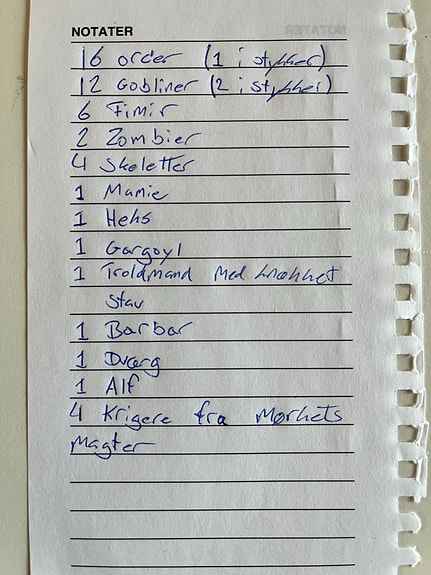 NOTATER
16 order (1 i stykker)
12 Gobliner (2 i stykker)
6 Fimir
2 Zombier
4 Skeletter
1 Mamie
1 Heks
1 Gargoyl
1 Troldmand med knækket
stav
1 Barbar
1 Dværg
1 Alf
4 Krigere fra Mørkets
Magter